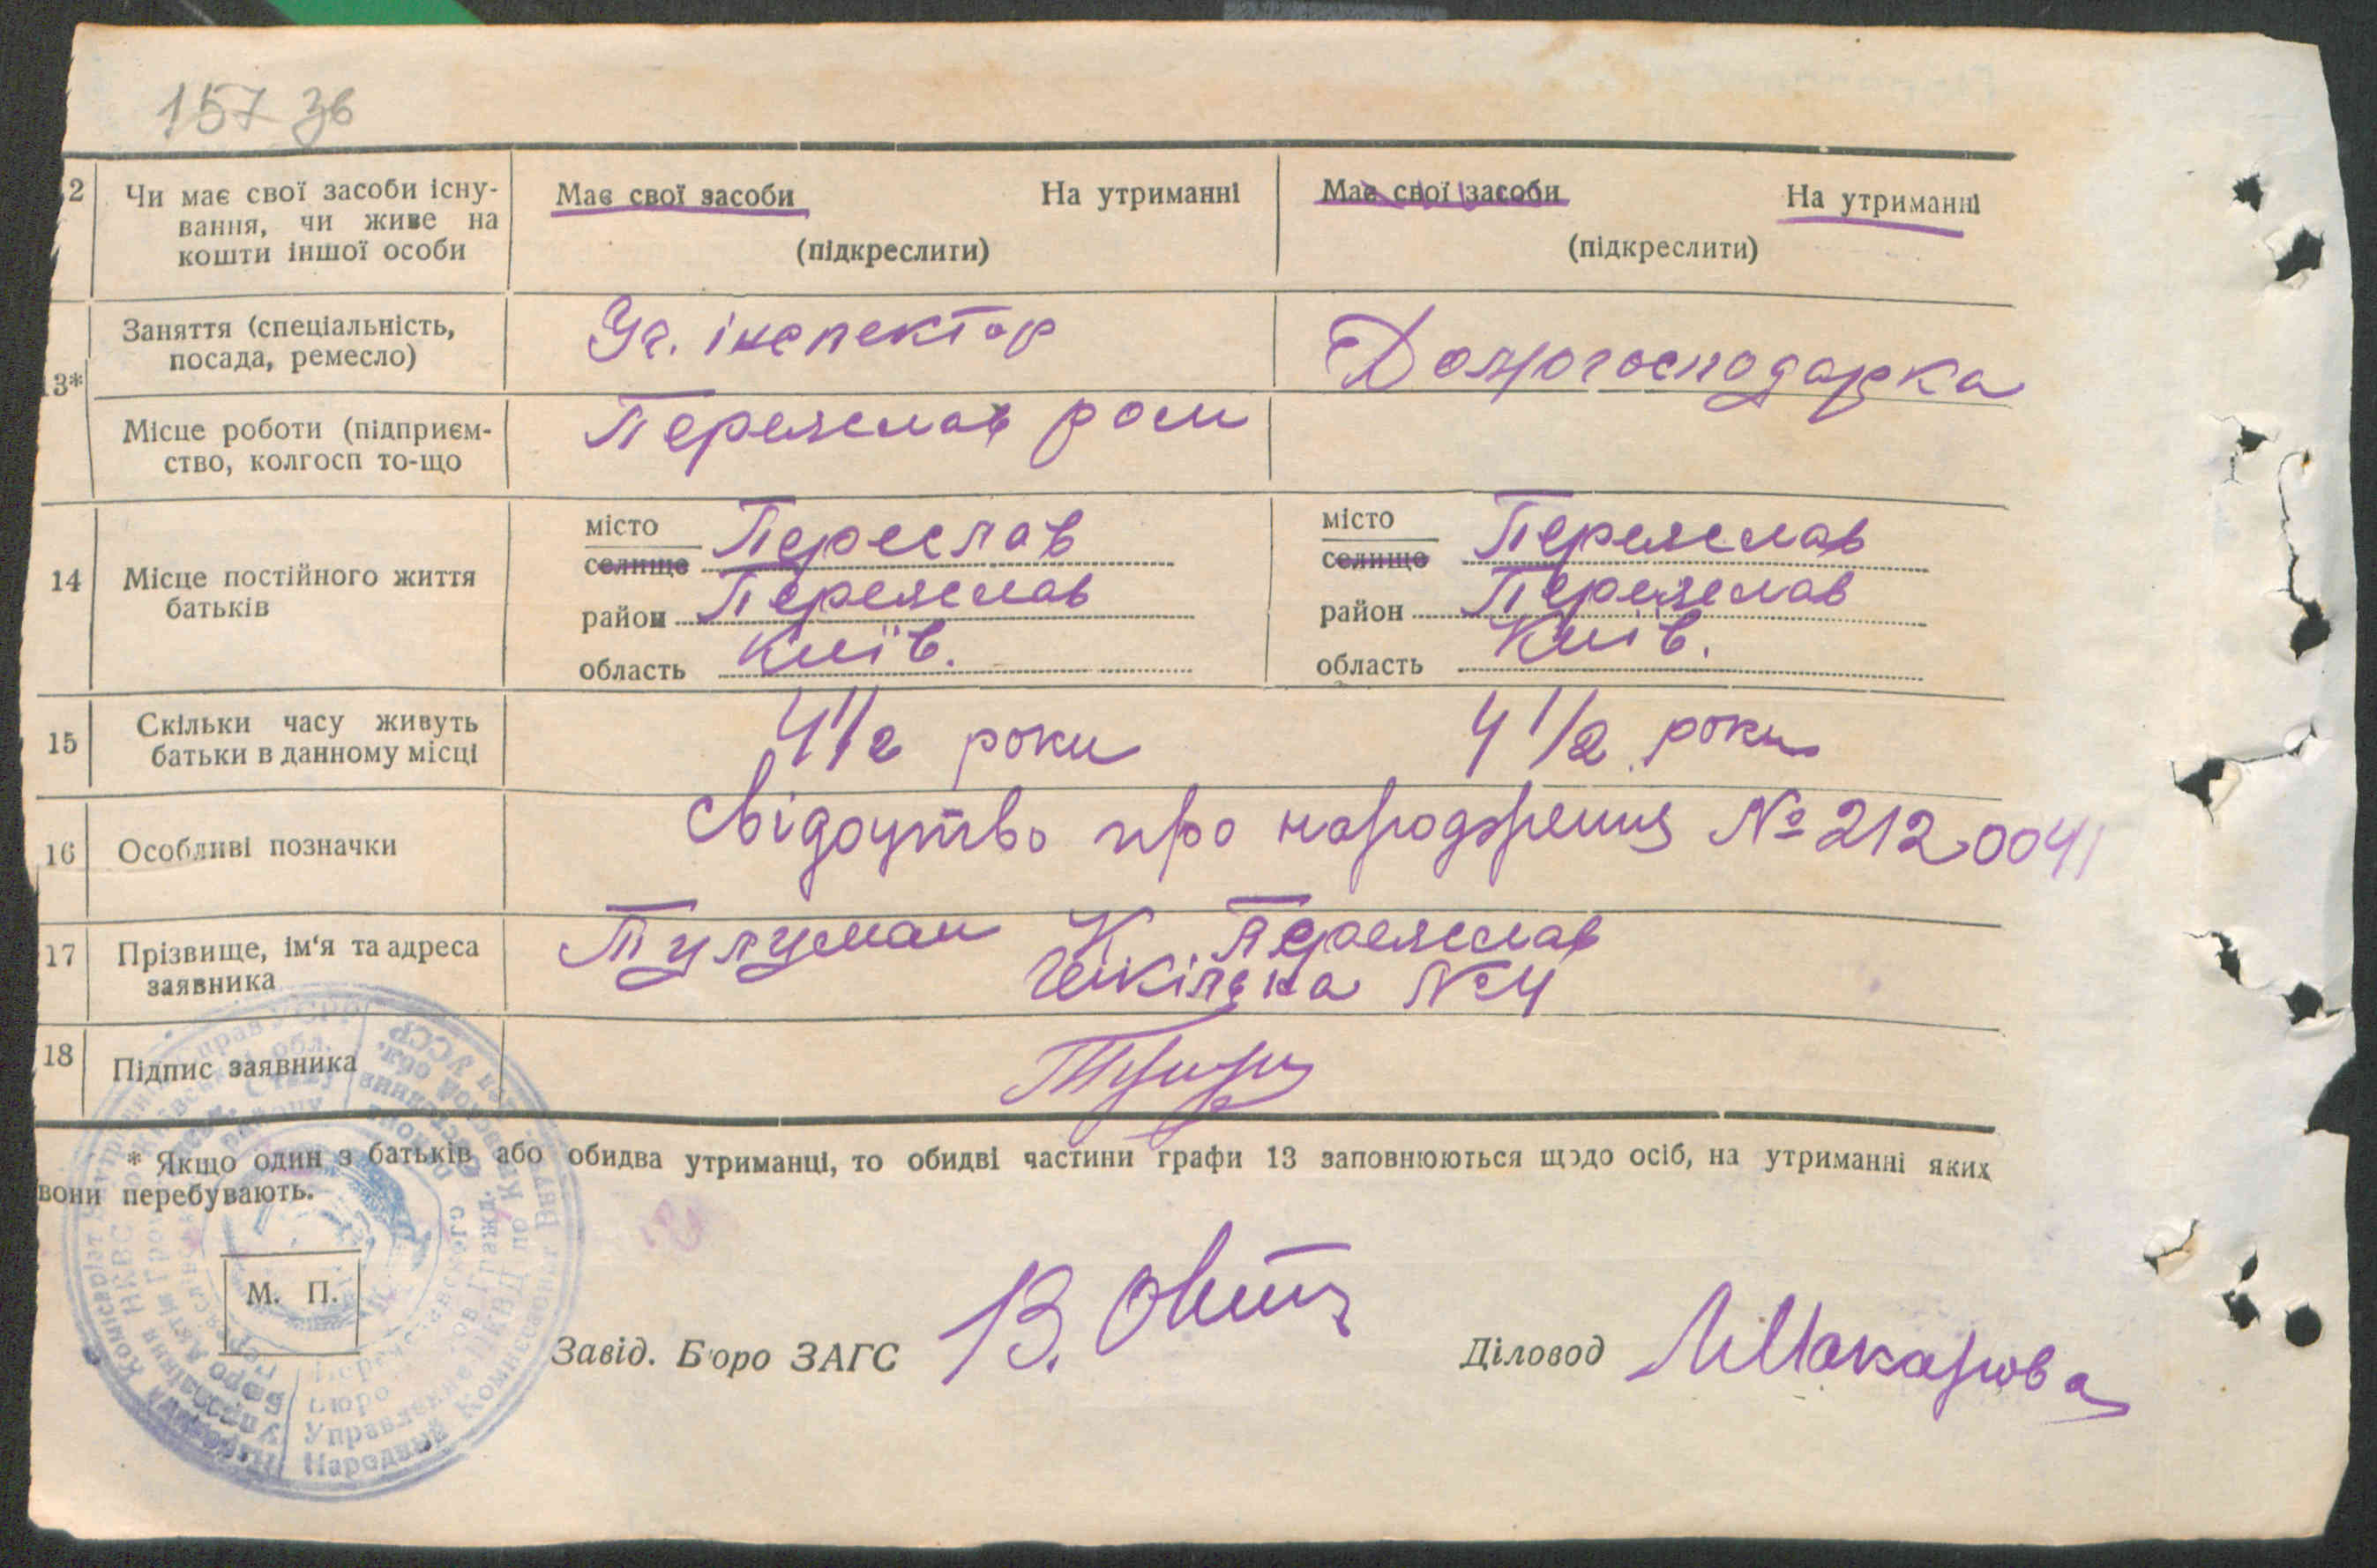 157 зв
2 Чи має свої засоби існу-
вання, чи живе на
кошти іншої особи
Має свої засоби На утриманні
(підкреслити)
Має свої засоби На утриманні
(підкреслити)
13* Заняття (спеціальність,
посада, ремесло)
Уч. інспектор
Домогосподарка
Місце роботи (підприєм-
ство, колгосп то-що
Переяслав
14 Місце постійного життя
батьків
місто
селище Переслав
район Переяслав
область Київ.
місто
селище Переяслав
район Переяслав
область Київ.
15 Скільки часу живуть
батьки в данному місці
4 1/2 роки 4 1/2 роки
16 Особливі позначки
свідоцтво про народження № 212004
17 Прізвище, ім'я та адреса
заявника
Тулуман К Переяслав
Шкільна №4
18 Підпис заявника
* Якщо один з батьків або обидва утриманці, то обидві частини графи 13 заповнюються щодо осіб, на утриманні яких
вони перебувають.
М. П.
Завід. Бюро ЗАГС В.
Діловод Макарова